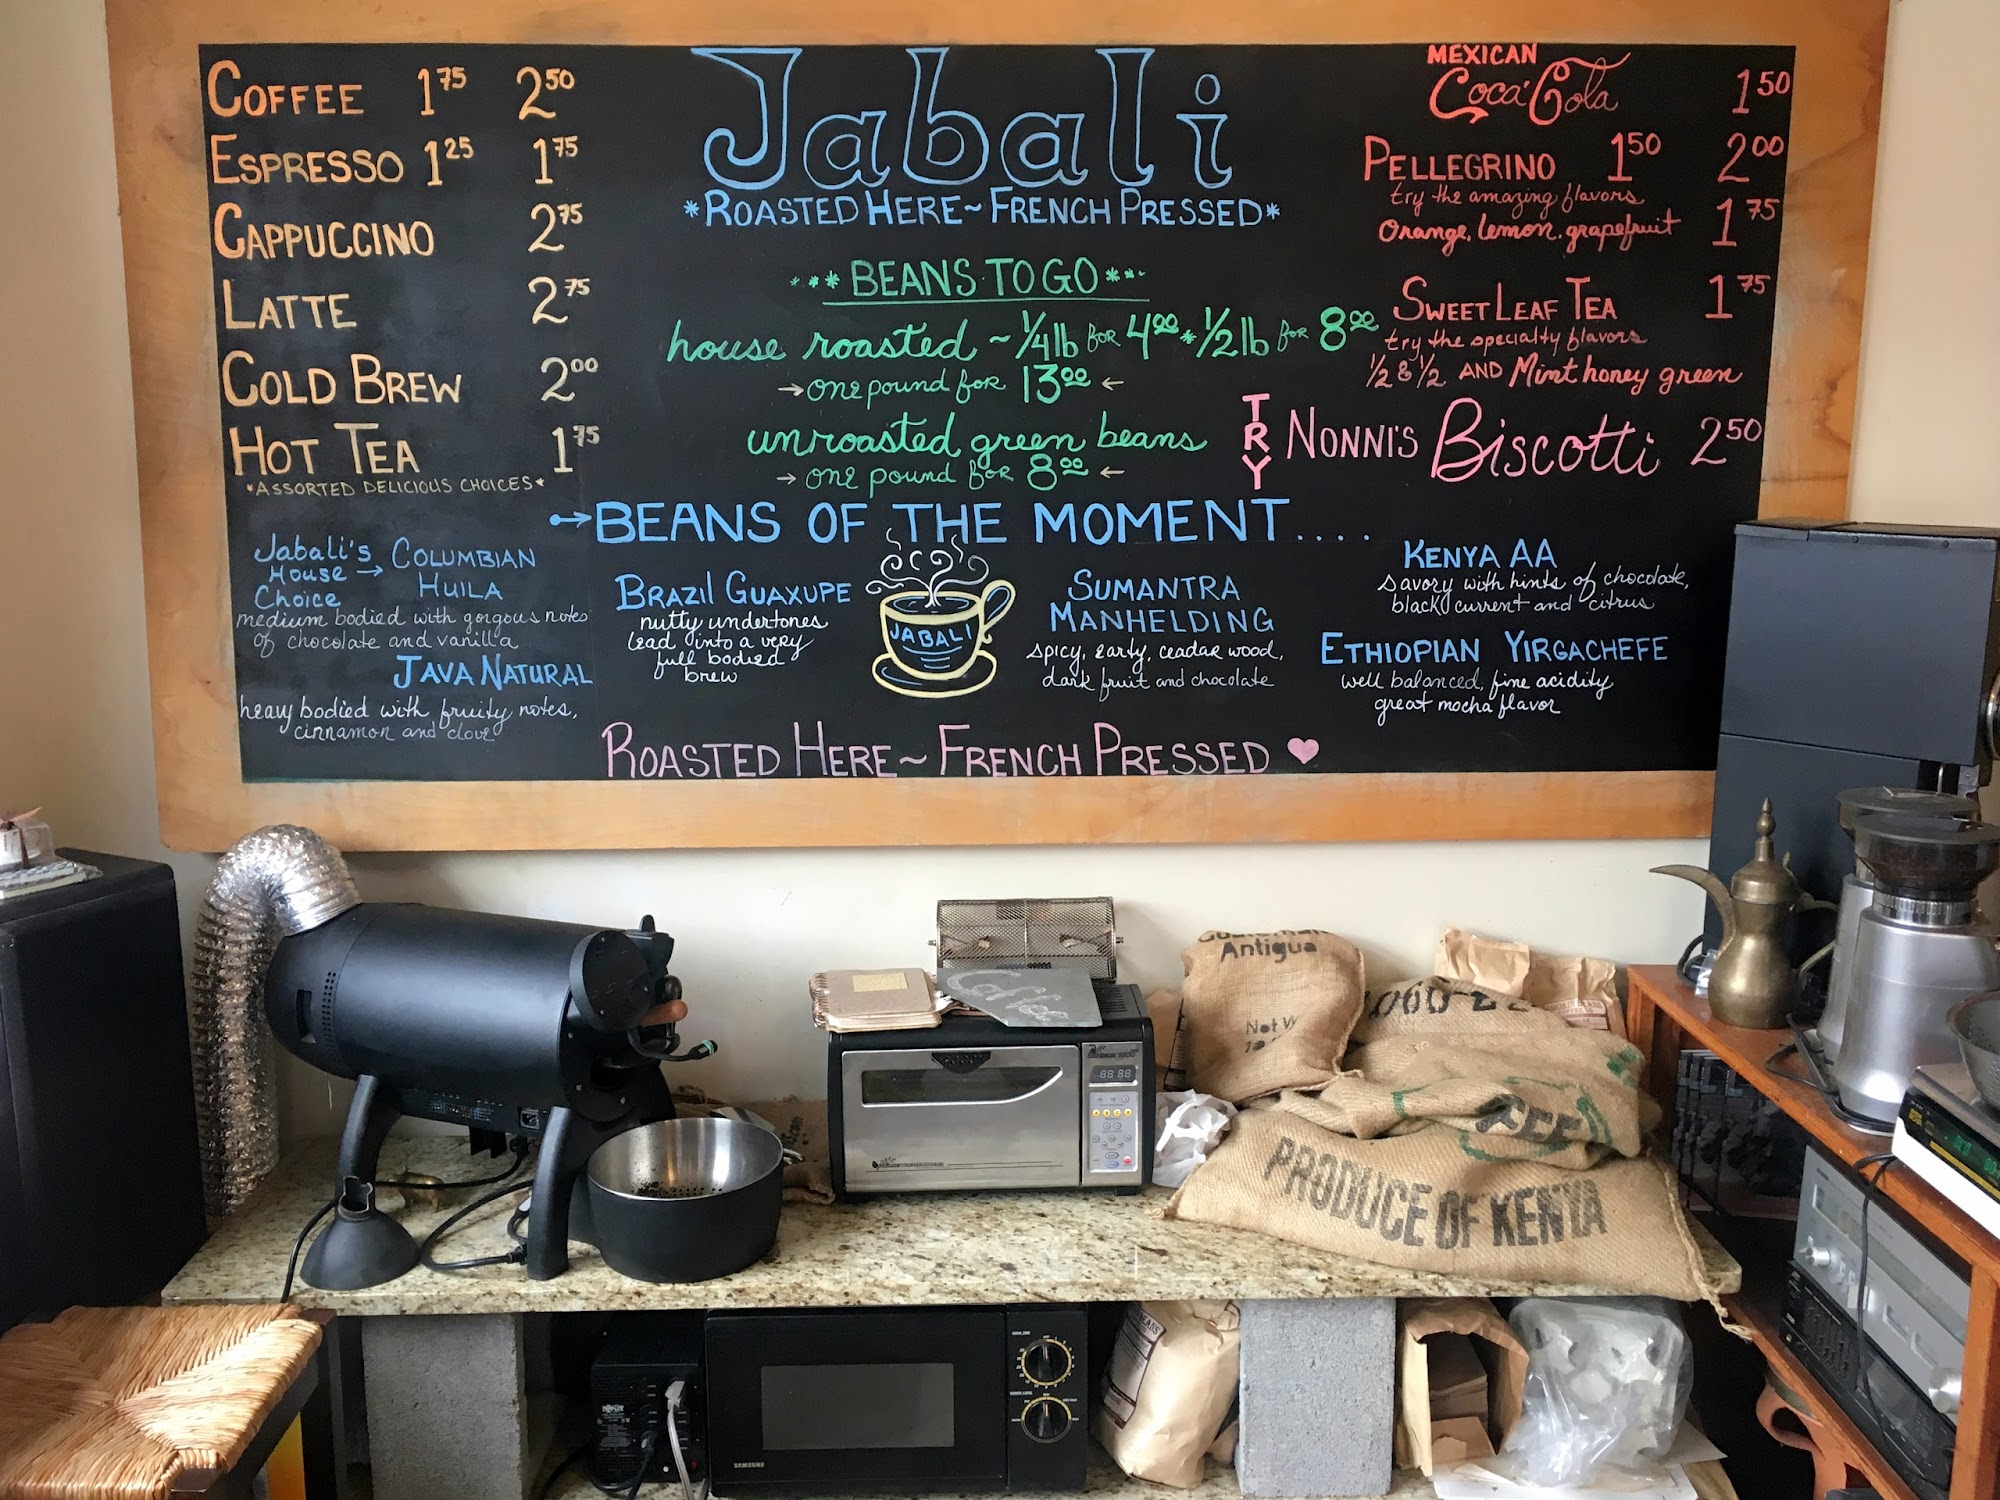 COFFEE 1.75 2.50
ESPRESSO 1.25 1.75
CAPPUCCINO 2.75
LATTE 2.75
COLD BREW 2.00
HOT TEA 1.75
*ASSORTED DELICIOUS CHOICES*
Jabali
*ROASTED HERE~FRENCH PRESSED*
BEANS TO GO
house roasted ~ 1/4 lb for 4.00 * 1/2 lb for 8.00
→ one pound for 13.00 ←
unroasted green beans
→ one pound for 8.00 ←
MEXICAN
Coca-Cola 1.50
PELLEGRINO 1.50 2.00
try the amazing flavors
Orange, lemon, grapefruit 1.75
SWEET LEAF TEA 1.75
try the specialty flavors
1/2 & 1/2 AND Mint honey green
TRY NONNI'S Biscotti 2.50
→ BEANS OF THE MOMENT....
Jabali's House Choice → COLUMBIAN HUILA
medium bodied with gorgous notes
of chocolate and vanilla
JAVA NATURAL
heavy bodied with fruity notes,
cinnamon and clove
BRAZIL GUAXUPE
nutty undertones
lead into a very
full bodied
brew
JABALI
SUMANTRA
MANHELDING
spicy, earty, ceadar wood,
dark fruit and chocolate
KENYA AA
savory with hints of chocolate,
black current and citrus
ETHIOPIAN YIRGACHEFE
well balanced, fine acidity
great mocha flavor
ROASTED HERE~FRENCH PRESSED ♥
Antigua
PRODUCE OF KENYA
SAMSUNG